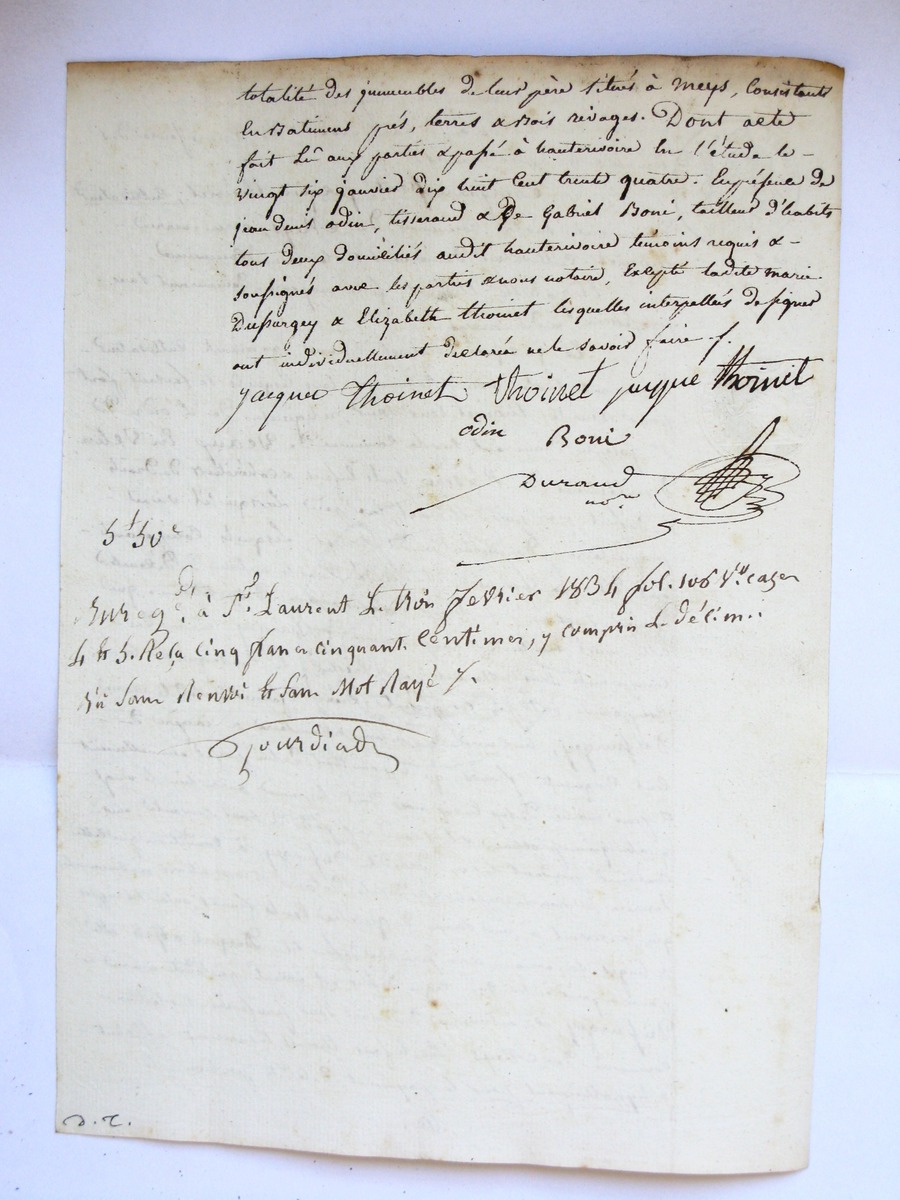 totalité des immeubles de leur père situés à meys, Consistants
En Batiment prés, terres & Bois rivages. Dont acte
fait Lû aux parties & passé à hauterivoire En l'étude le -
vingt six janvier dix huit Cent trente quatre. En présence de
jean denis odin, tisserand & De Gabriel Boni, tailleur d'habits
tous deux domiciliés audit hauterivoire témoins requis & -
soussignés avec les parties & nous notaire, Excepté ladite marie
Dupurgey & Elizabeth thoinet lesquelles interpellées de signer
ont individuellement declarée ne le savoir faire /.
jacques thoinet thoinet thoinet
odin Boni
Durand
no.re
5f 50c
Enreg.é à St. Laurent Le trois fevrier 1834 fol. 108 V.o cases
4 & 5. Reçu cinq francs cinquante Centimes, y compris Le décime.
Sans Renvoi & Sans Mot Rayé /.
Jourdiad
D. T.